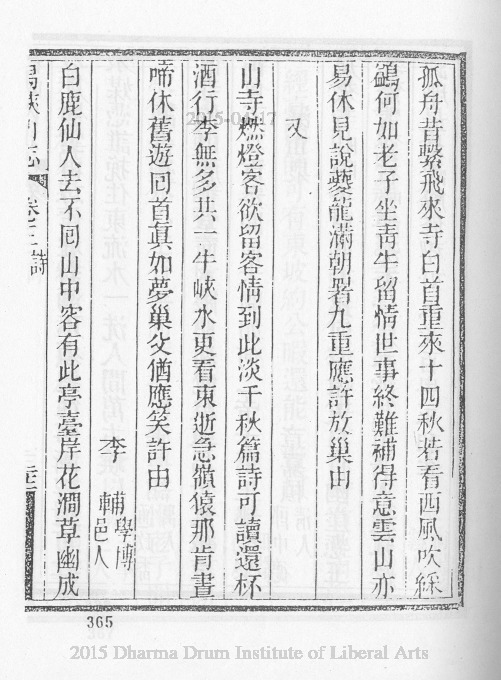 孤舟昔繫飛來寺白首重來十四秋若看西風吹綵
鷁何如老子坐靑牛留情世事終難補得意雲山亦
易休見說夔龍滿朝署九重應許放巢由
又
山寺燃燈客欲留客情到此淡千秋篇詩可讀還杯
酒行李無多共一牛峽水更看東逝急嶺猿那肯晝
啼休舊遊囘首眞如夢巢父猶應笑許由
李 輔學博邑人
白鹿仙人去不囘山中客有此亭臺岸花澗草幽成
卷三 詩
365
2015 Dharma Drum Institute of Liberal Arts